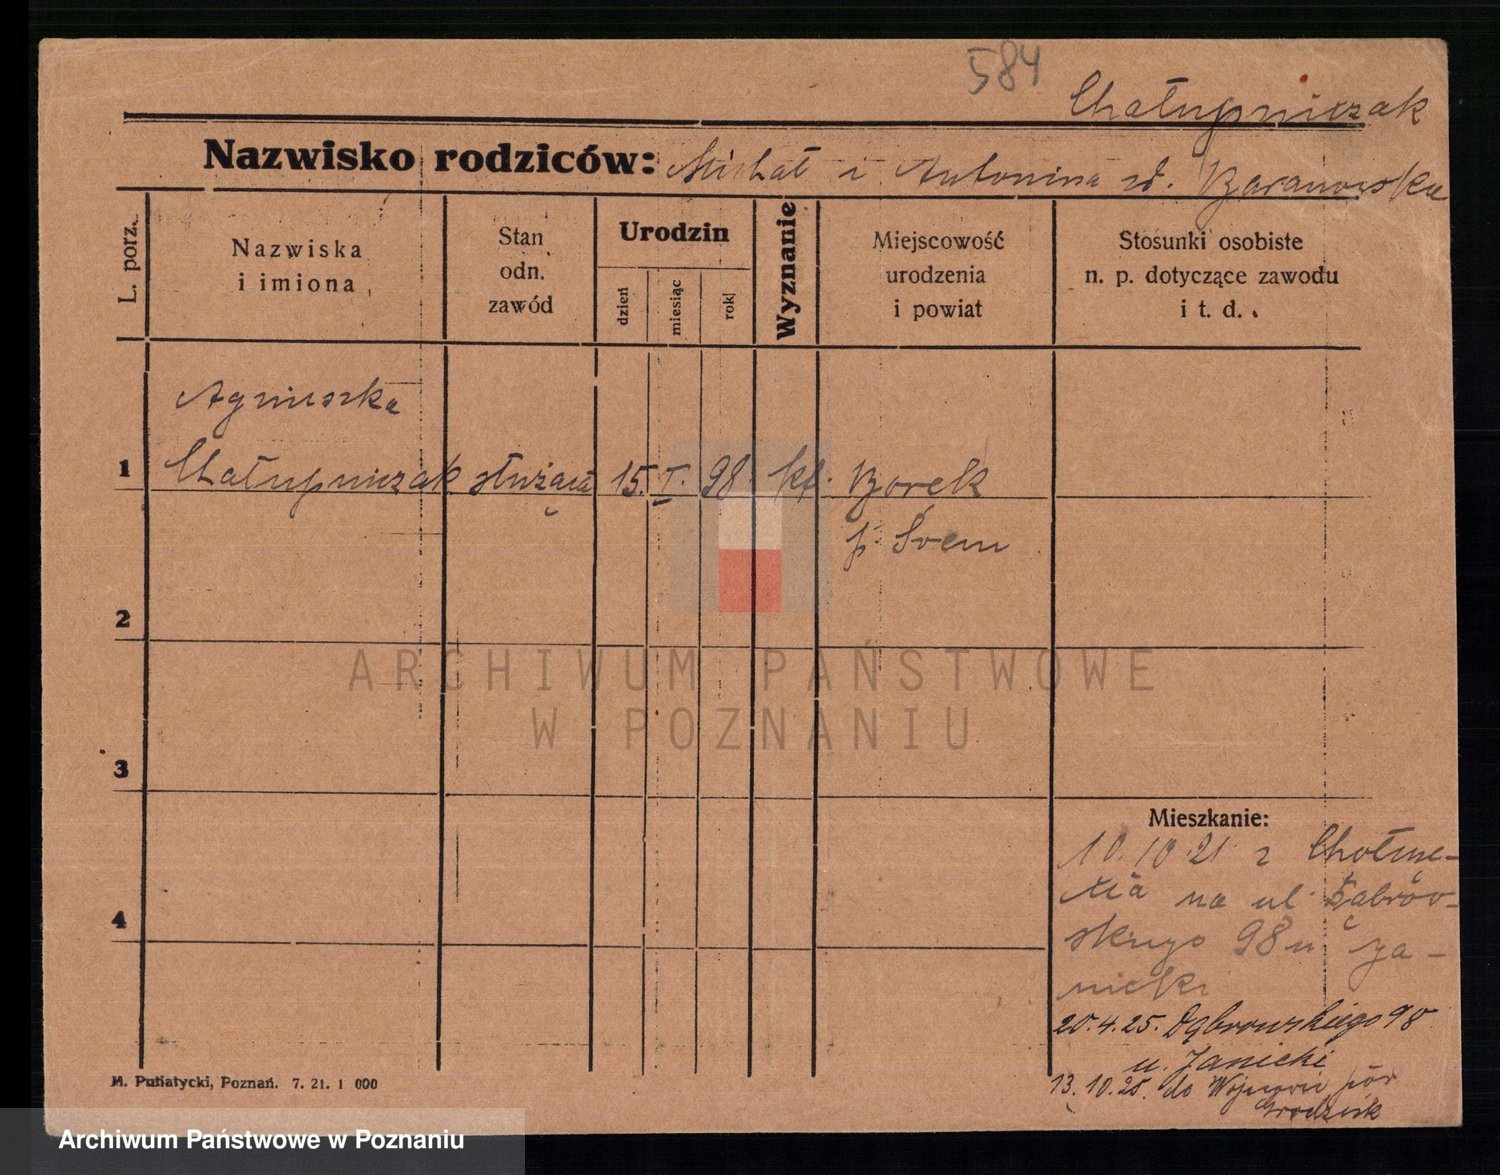 584
Chałupniczak
Nazwisko rodziców: Michał i Antonina zd. Baranowska
L. porz.
Nazwiska
i imiona
Stan
odn.
zawód
Urodzin
dzień
miesiąc
rok
Wyznanie
Miejscowość
urodzenia
i powiat
Stosunki osobiste
n. p. dotyczące zawodu
i t. d.
Agnieszka
1 Chałupniczak służąca 15. I. 98. kt. Borek
p. Śrem
2
3
4
ARCHIWUM PAŃSTWOWE
W POZNANIU
Mieszkanie:
10.10.21 z
na ul. Dąbrow-
skiego 98 u Ja-
nicki
20.4.25. Dąbrowskiego 98
u. Janicki
13.10.25. do pow
Grodzisk
M. Putiatycki, Poznań. 7. 21. 1 000
Archiwum Państwowe w Poznaniu